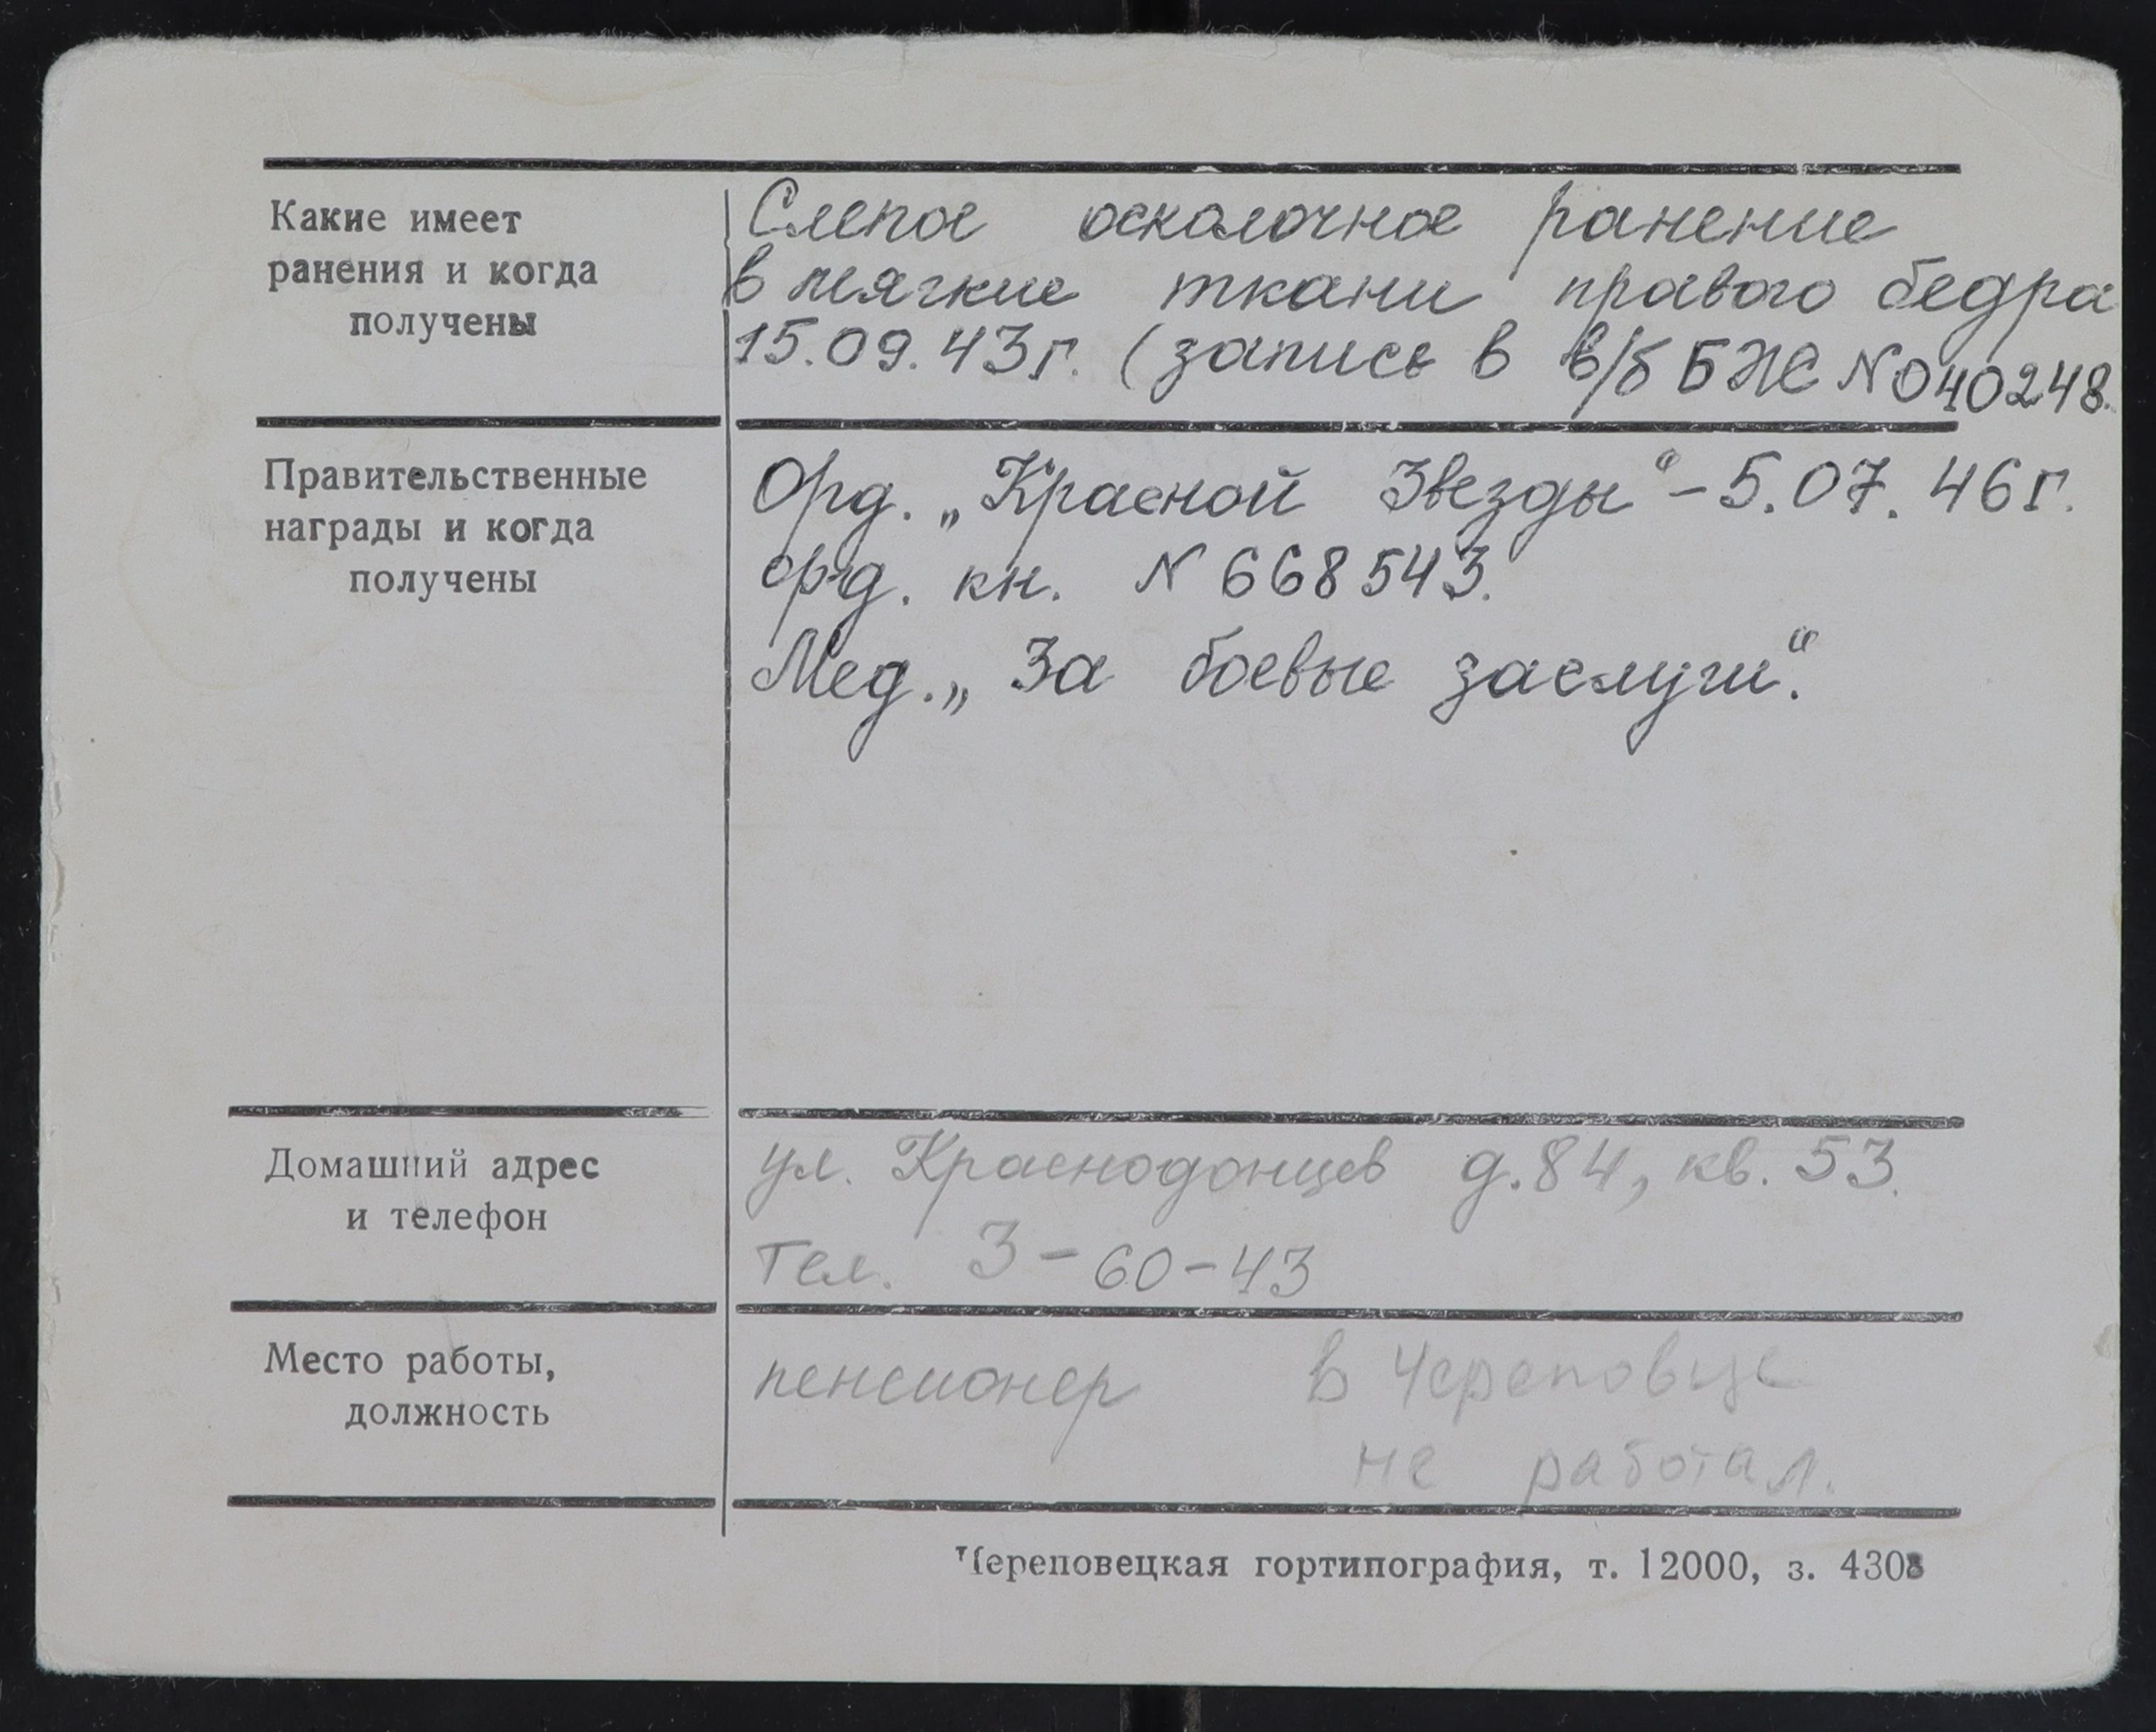 Какие имеет
ранения и когда
получены
Слепое осколочное ранение
в мягкие ткани правого бедра
15.09.43г. (запись в в/б БЖ №040248.
Правительственные
награды и когда
получены
Орд. „Красной Звезды“ – 5.07.46г.
орд. кн. № 668543.
Мед. „За боевые заслуги“.
Домашний адрес
и телефон
ул. Краснодонцев д.84, кв. 53.
Тел. 3-60-43
Место работы,
должность
пенсионер в Череповце
не работал.
Череповецкая гортипография, т. 12000, з. 4308